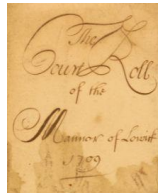 The
Court Roll
of the
Mannor of Lowat
1709